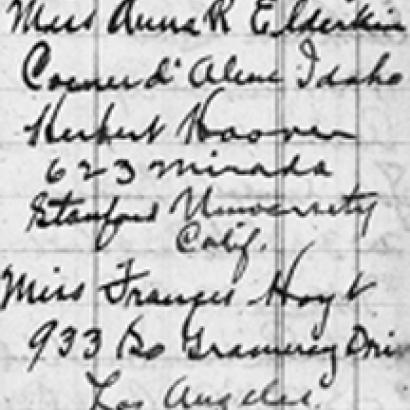 Miss Anna R Elderkin
Coeuer d' Alene Idaho
Herbert Hoover
623 Mirada
Stanford University
Calif.
Miss Frances Hoyt
933 So Gramercy Dri
Los Angeles.